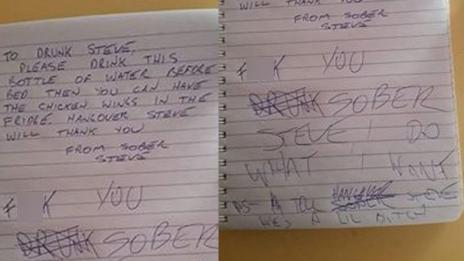 TO DRUNK STEVE,
PLEASE DRINK THIS
BOTTLE OF WATER BEFORE
BED THEN YOU CAN HAVE
THE CHICKEN WINGS IN THE
FRIDGE. HANGOVER STEVE
WILL THANK YOU
FROM SOBER
STEVE
F K YOU
DRUNK SOBER
WILL THANK YOU
FROM SOBER
STEVE
F K YOU
DRUNK SOBER
STEVE! I DO
WHAT I WANT
PS- A TELL HANGOVER STEVE
HES A LIL BITCH